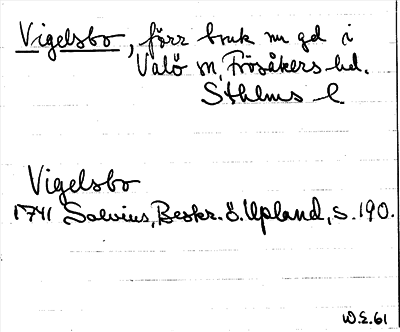 Vigelsbo, förr bruk nu gd i
Valö sn, Frösåkers hd.
Sthlms l
Vigelsbo
1741 Salvius, Beskr. ö. Upland, s. 190.
W.E. 61